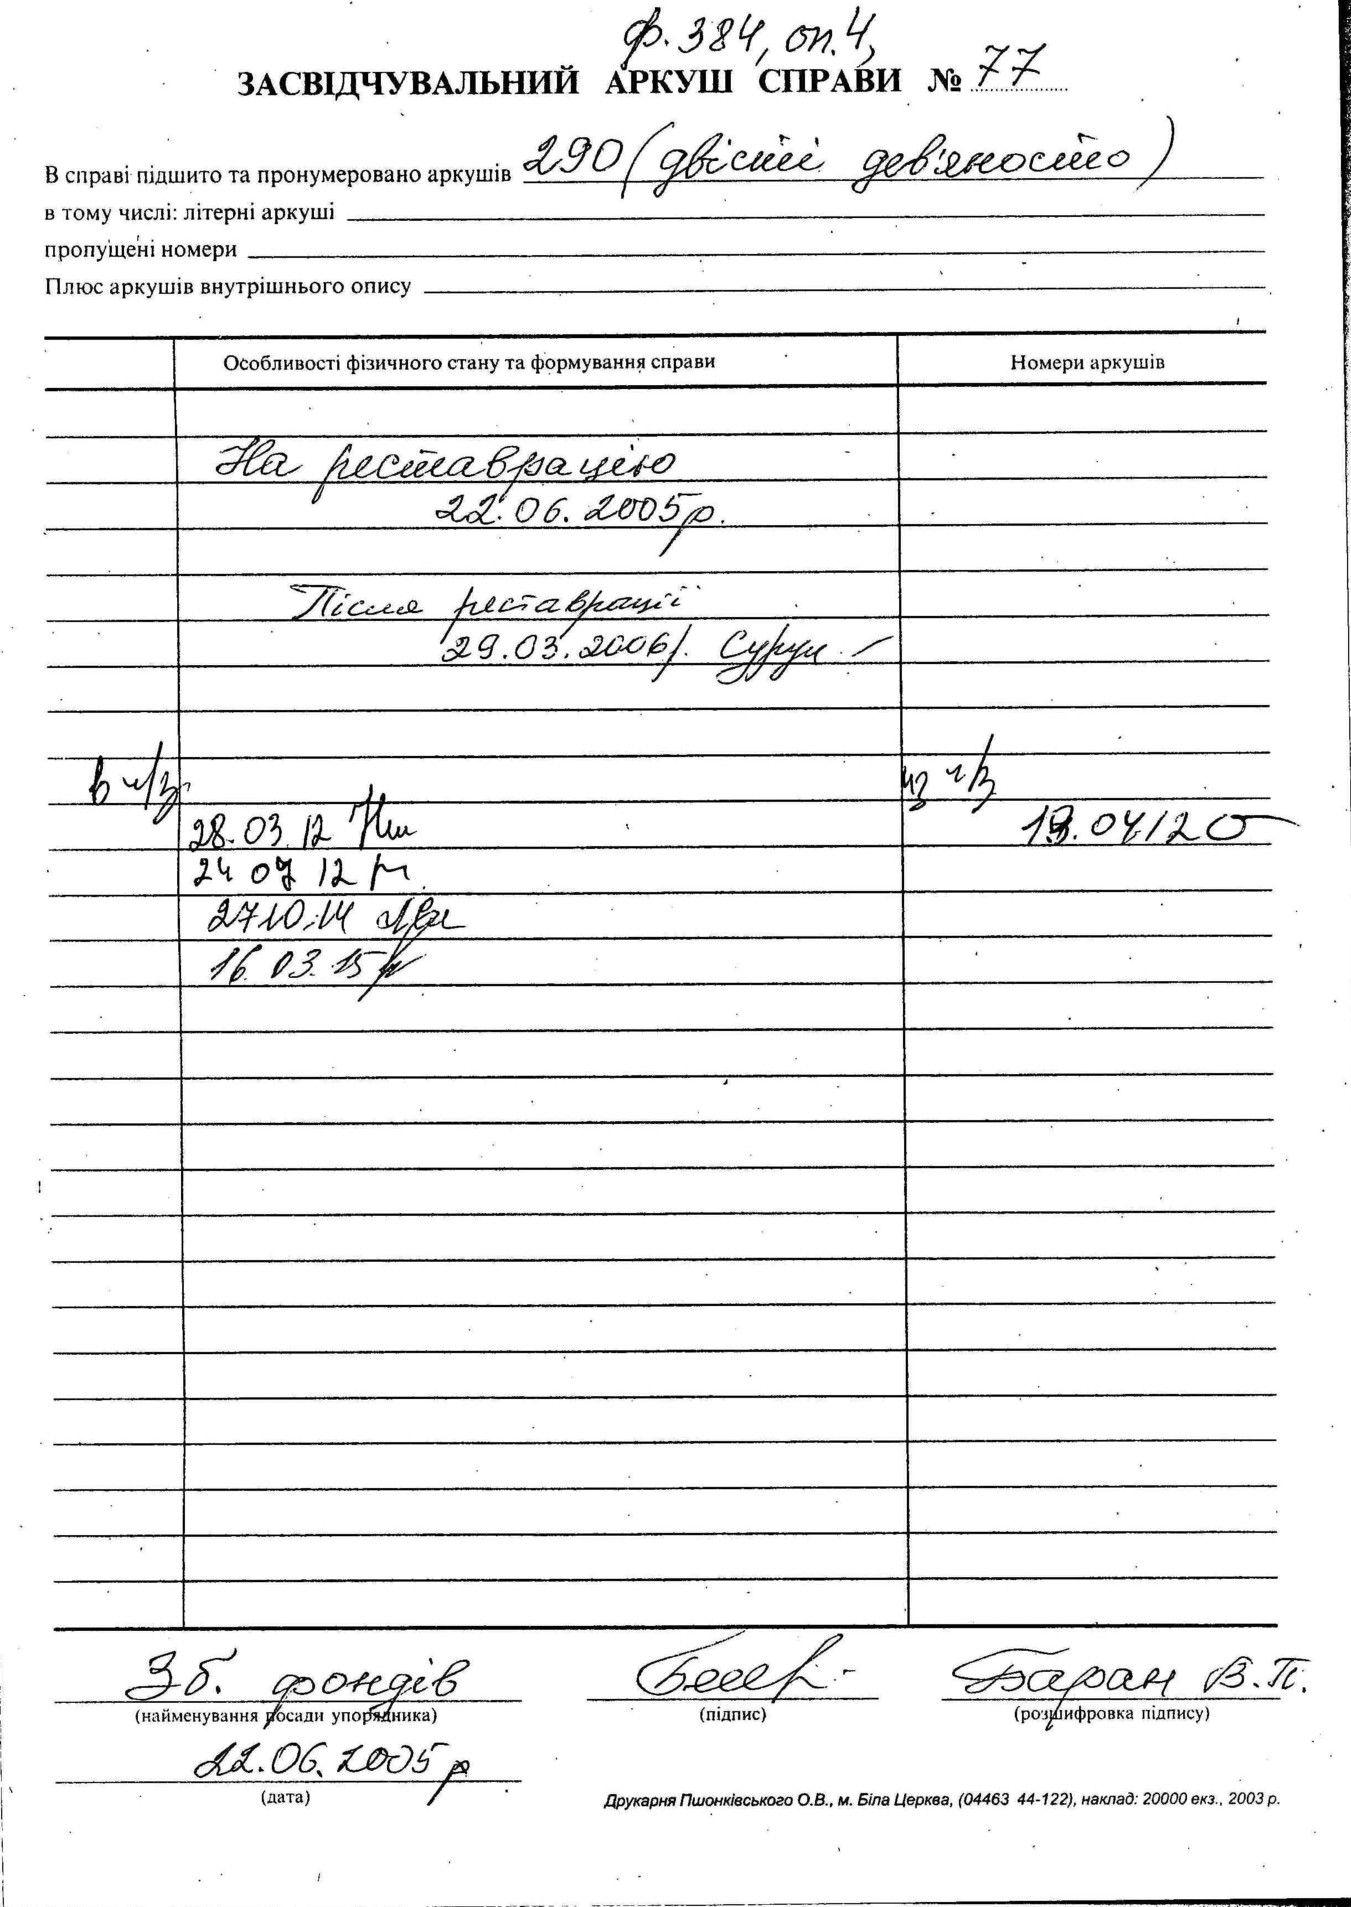 ф. 384, оп. 4,
ЗАСВІДЧУВАЛЬНИЙ АРКУШ СПРАВИ № 77
В справі підшито та пронумеровано аркушів 290 (двісті дев'яносто)
в тому числі: літерні аркуші
пропущені номери
Плюс аркушів внутрішнього опису
Особливості фізичного стану та формування справи Номери аркушів
На реставрацію
22.06.2005р.
Після реставрації
29.03.2006р.
в ч/з из ч/з
28.03.12 04/12
24 07 12
27.10.14
16.03.15
Зб. фондів Баран В.П.
(найменування посади упорядника) (підпис) (розшифровка підпису)
22.06.2005р
(дата)
Друкарня Пшонківського О.В., м. Біла Церква, (04463 44-122), наклад: 20000 екз., 2003 р.